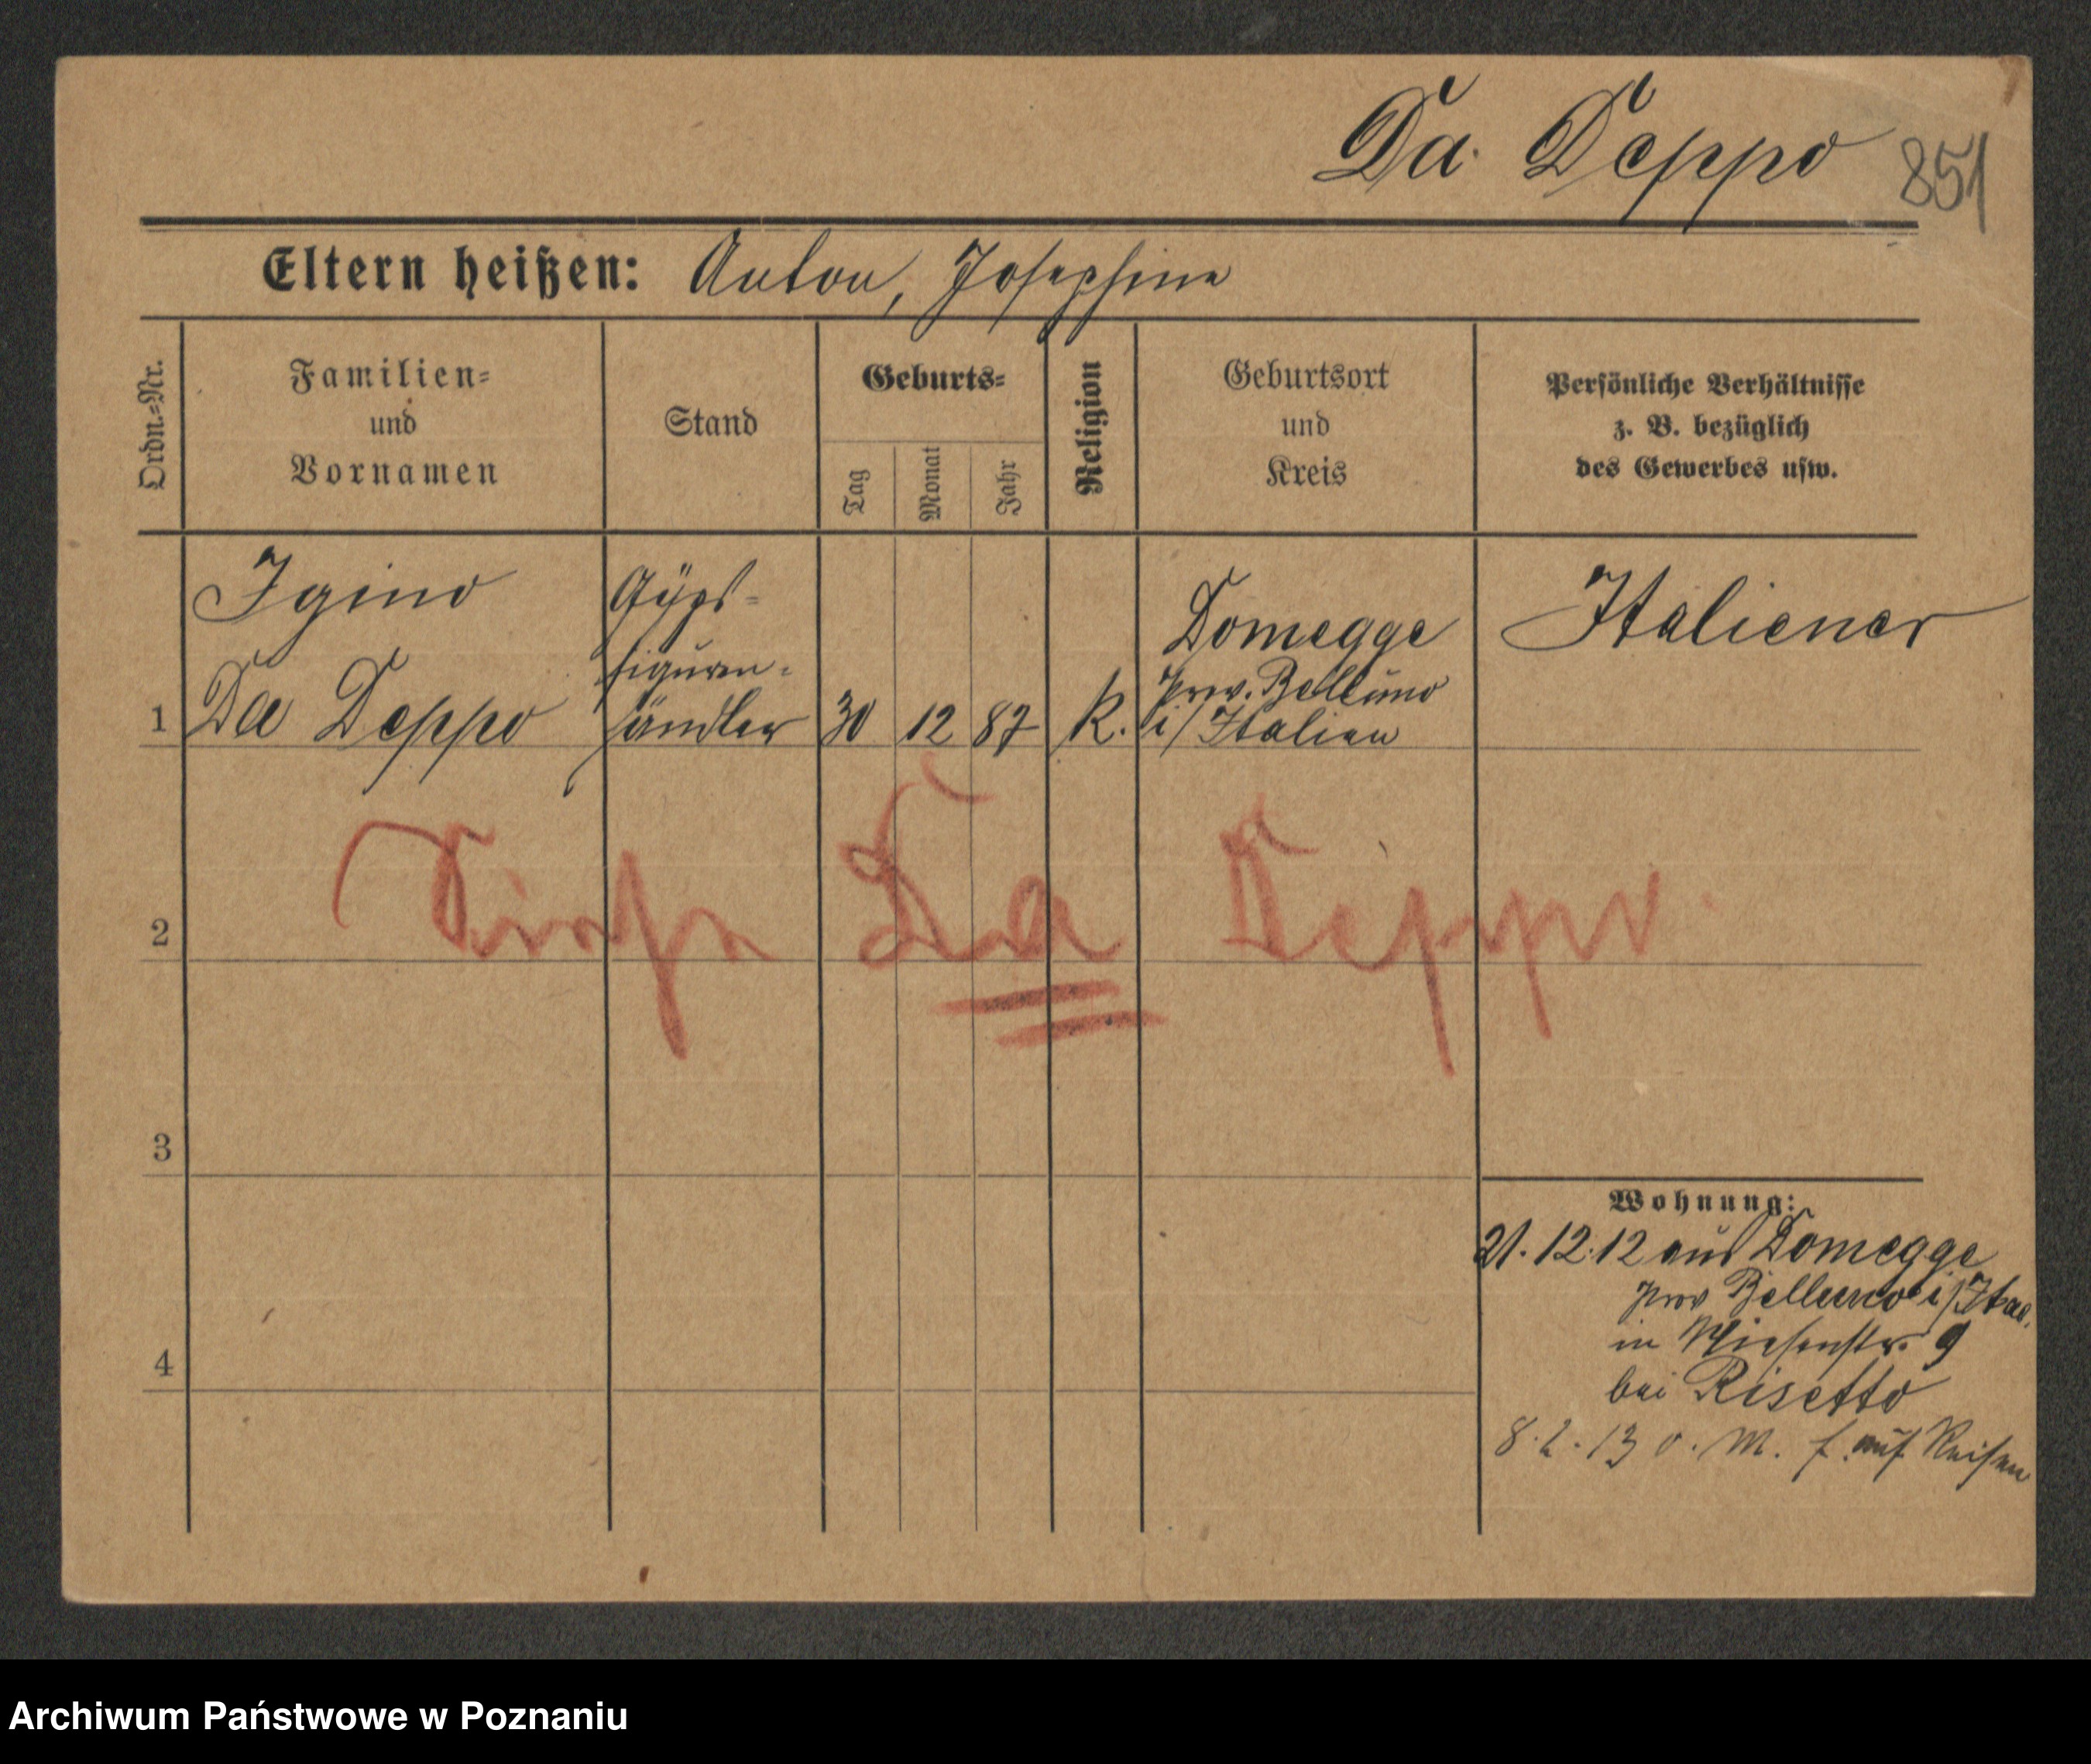 Da Deppo
851
Eltern heißen: Anton, Josephine
Ordn.=Nr.
Familien=
und
Vornamen
Stand
Geburts=
Tag
Monat
Jahr
Religion
Geburtsort
und
Kreis
Persönliche Verhältnisse
z. B. bezüglich
des Gewerbes usw.
Igino
Da Deppo
Gÿps=
figuren=
händler
1
30
12
87
K.
Domegge
Prov. Belluno
i/Italien
Italiener
2
Siehe Da Deppo.
3
4
Wohnung:
21.12.12 aus Domegge
Prov Belluno i/Ital.
in Wiesenstr. 9
bei Risetto
8.2.13 o. M. f. auf Reisen
Archiwum Państwowe w Poznaniu